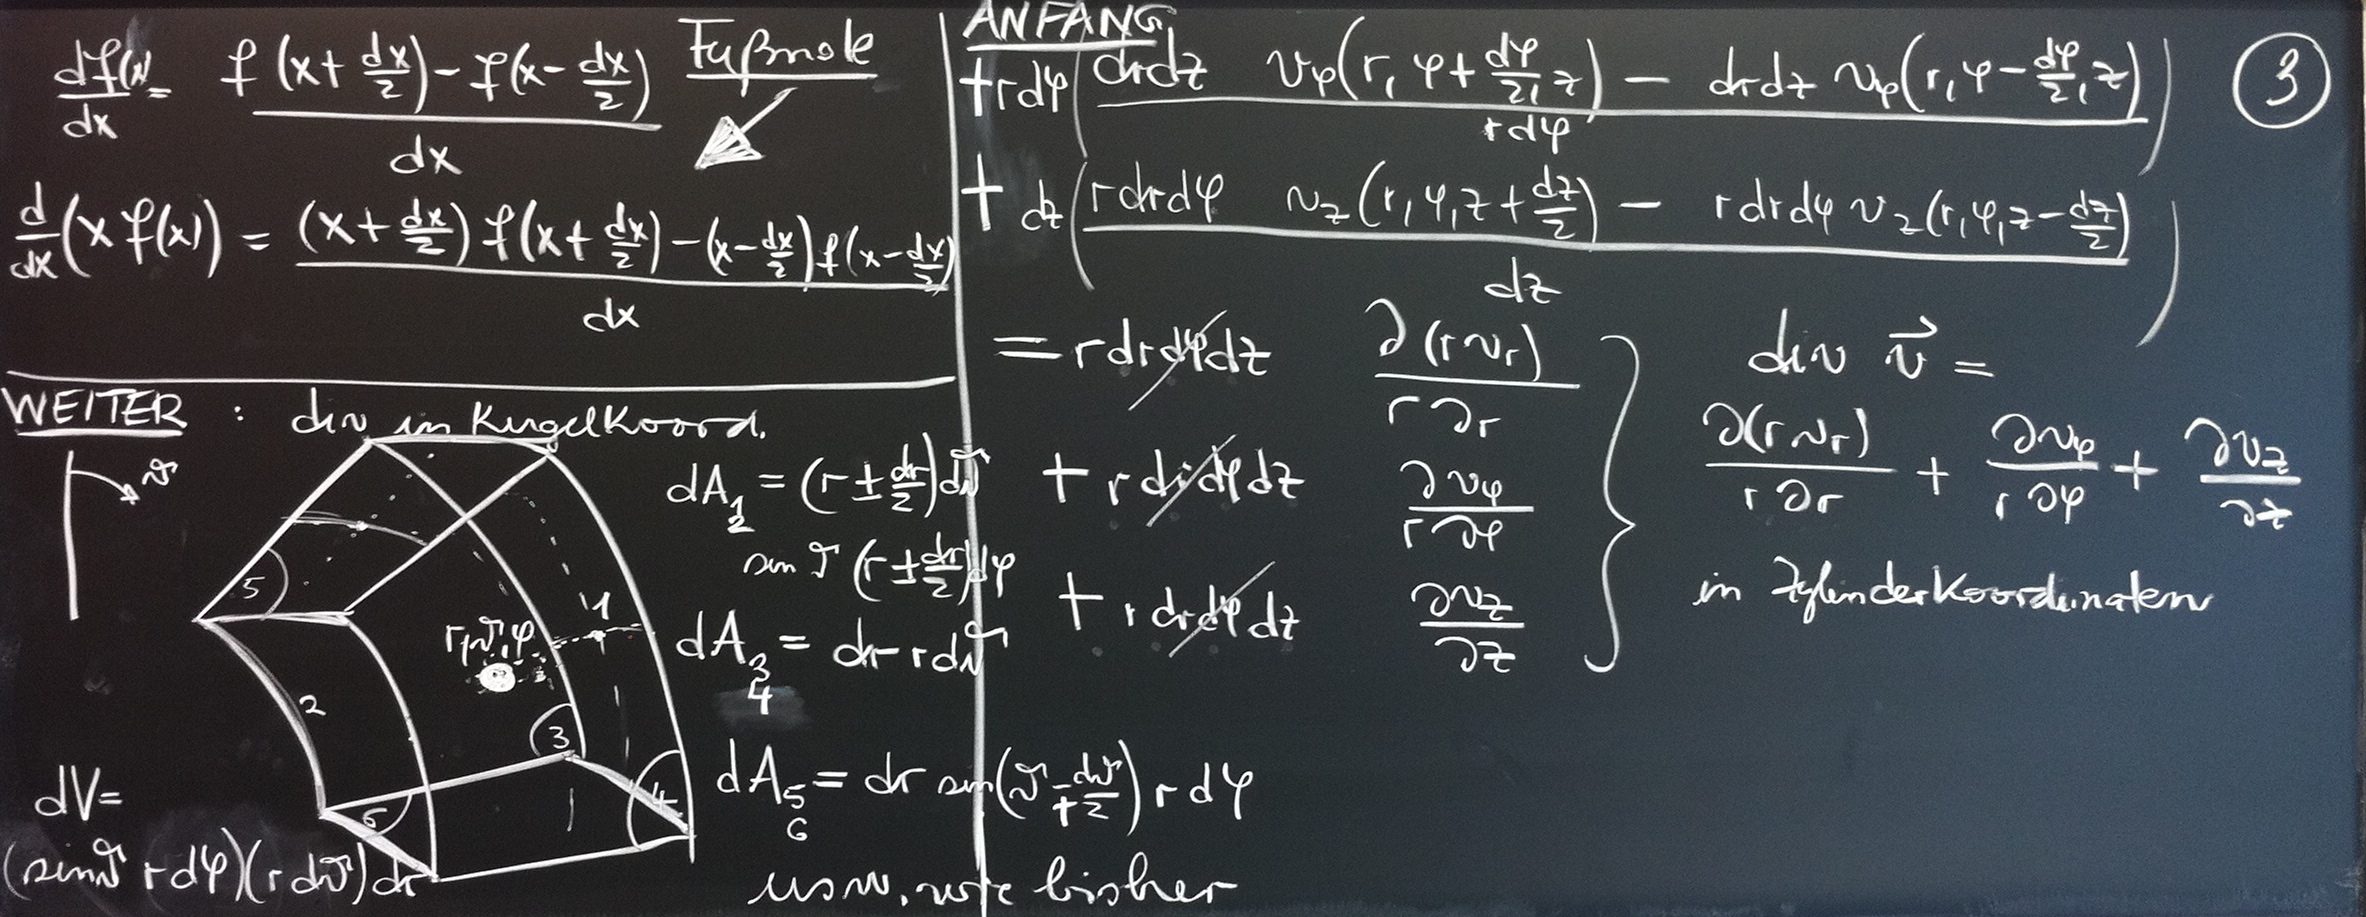 df(x)/dx = (f(x+dx/2)-f(x-dx/2))/dx Fußnote
d/dx (x f(x)) = ((x+dx/2) f(x+dx/2)-(x-dx/2) f(x-dx/2))/dx
WEITER : div in Kugelkoord.
ϑ
5
r,ϑ,φ
1
2
3
4
6
dA₁ ₂ = (r±dr/2)dϑ
sin ϑ (r±dr/2)dφ
dA₃ ₄ = dr r dϑ
dA₅ ₆ = dr sin(ϑ∓dϑ/2) r dφ
usw. wie bisher
dV=
(sinϑ r dφ)(r dϑ)dr
ANFANG
③
+rdφ( (drdz v_φ(r,φ+dφ/2,z) - drdz v_φ(r,φ-dφ/2,z))/rdφ )
+ dz( (rdrdφ v_z(r,φ,z+dz/2) - rdrdφ v_z(r,φ,z-dz/2))/dz )
= r dr dφ dz ∂(r v_r)/r∂r
+ r dr dφ dz ∂v_φ/r∂φ
+ r dr dφ dz ∂v_z/∂z
div v⃗ =
∂(r v_r)/r∂r + ∂v_φ/r∂φ + ∂v_z/∂z
in Zylinderkoordinaten